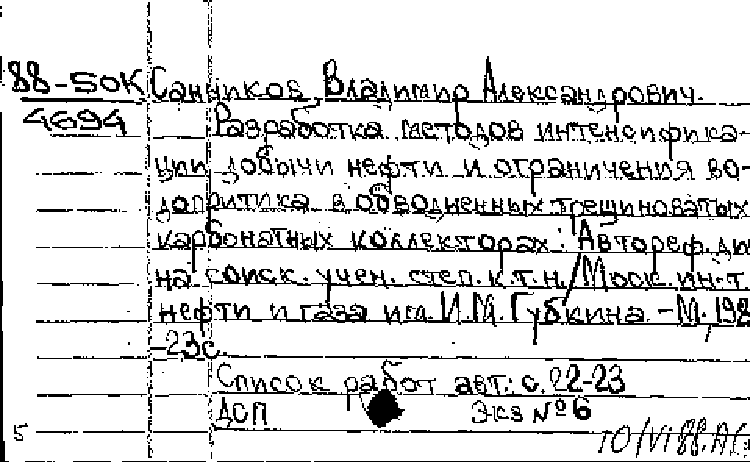 88-50К Санников Владимир Александрович.
4694 Разработка методов интенсифика-
ции добычи нефти и ограничения во-
допритика в обводненных трещиноватых
карбонатных коллекторах: Автореф. ди
на соиск. учен. степ. к.т.н. / Моск. ин-т
нефти и газа им. И.М. Губкина. – М., 198
– 23с.
Список работ авт.: с. 22-23
ДСП Экз № 6
5
10/VI 88. АС